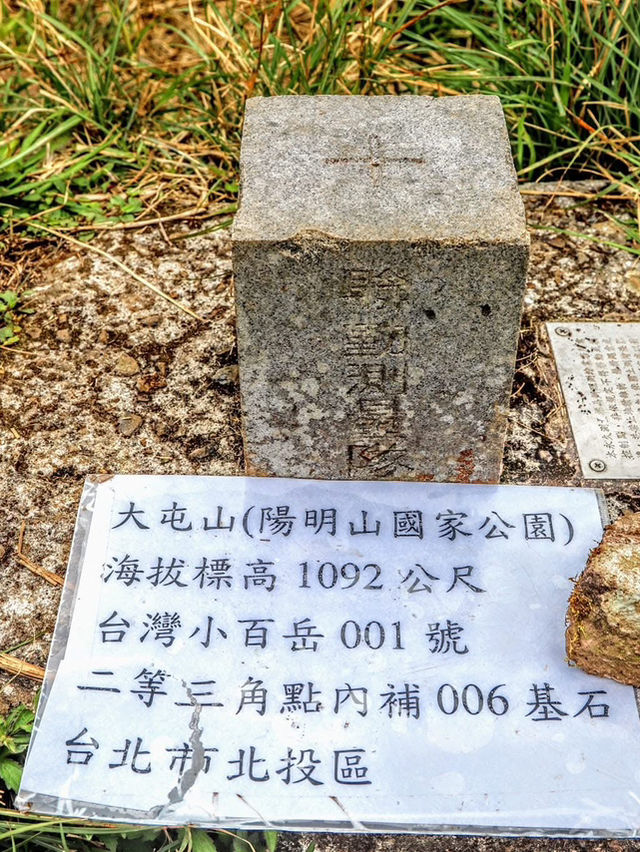 聯勤測量隊
大屯山(陽明山國家公園)
海拔標高 1092 公尺
台灣小百岳 001 號
二等三角點內補 006 基石
台北市北投區